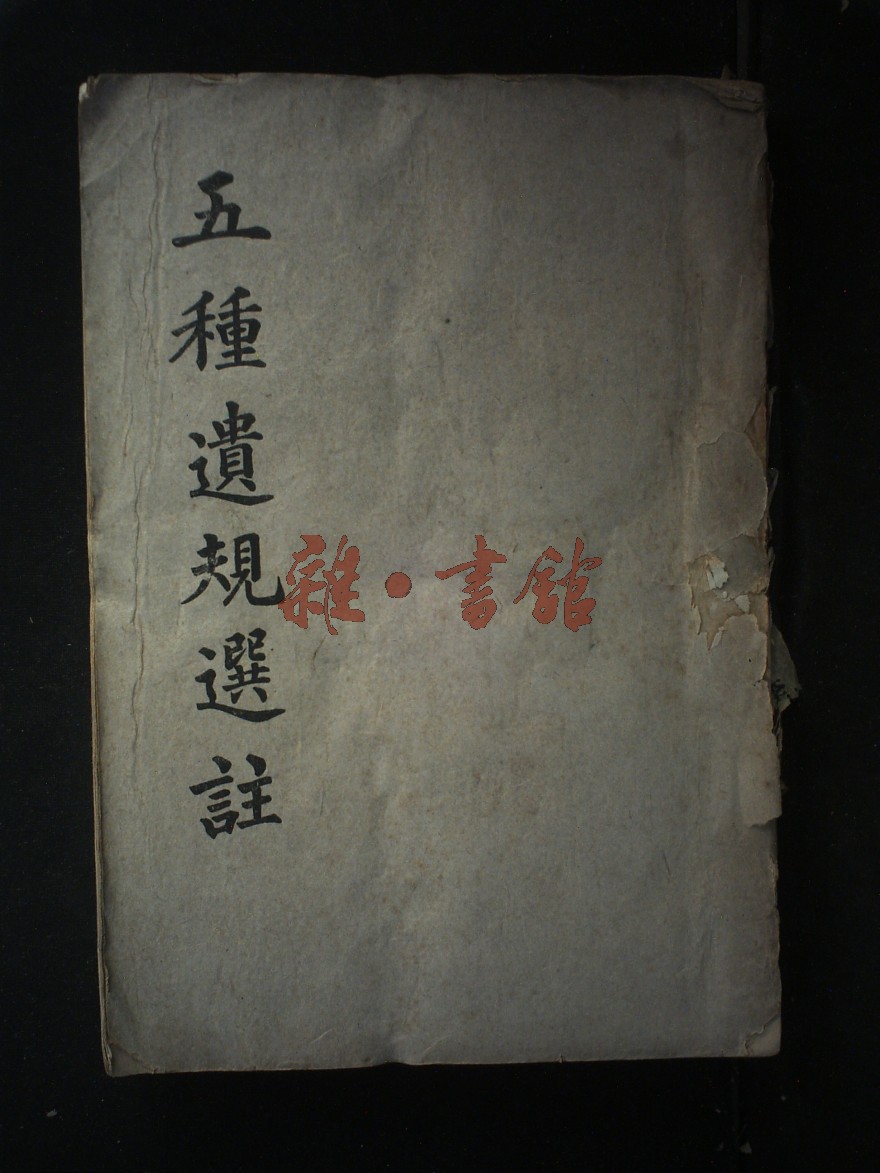 五種遺規選註
雜·書館